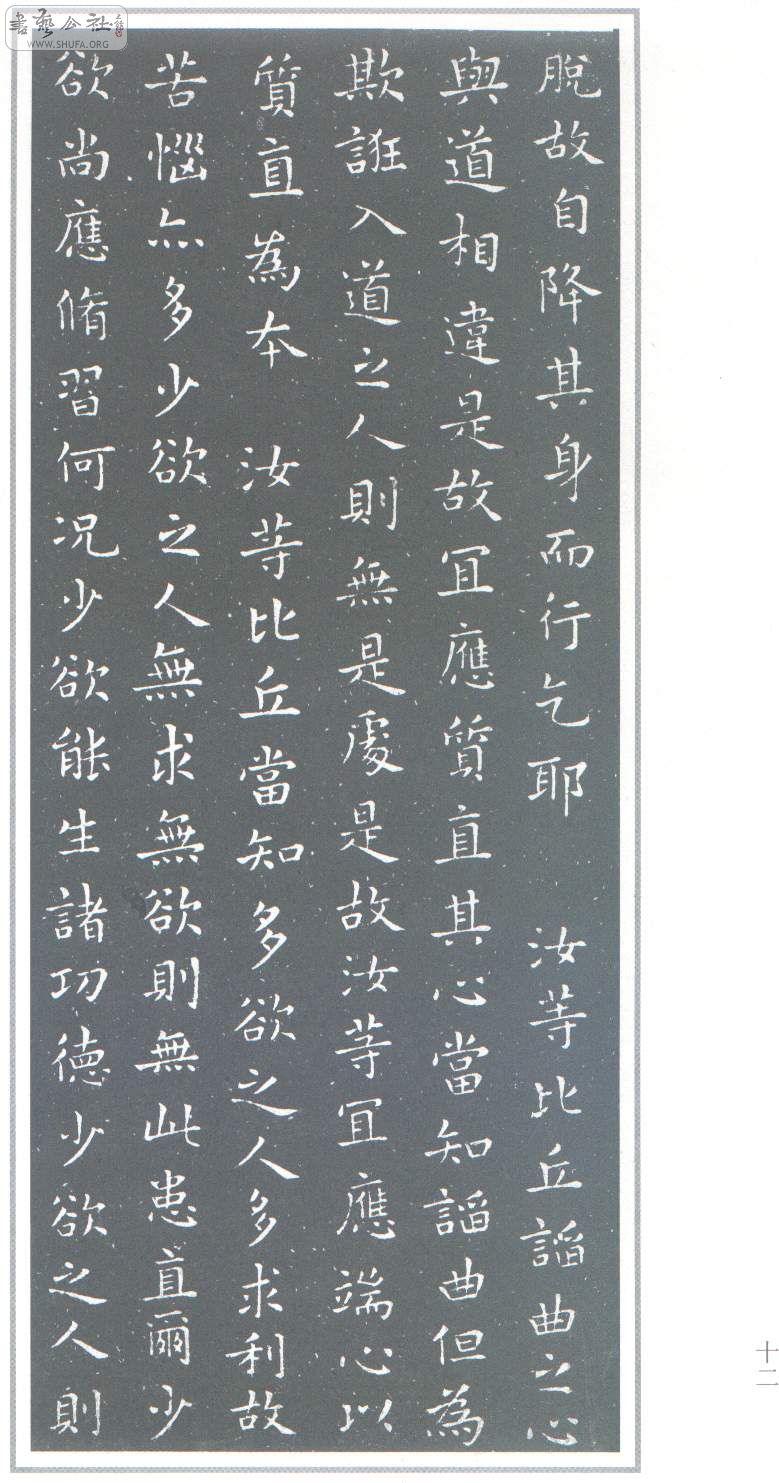 脫故自降其身而行乞耶 汝等比丘諂曲之心
與道相違是故宜應質直其心當知諂曲但為
欺誑入道之人則無是處是故汝等宜應端心以
質直為本 汝等比丘當知多欲之人多求利故
苦惱亦多少欲之人無求無欲則無此患直爾少
欲尚應脩習何况少欲能生諸功德少欲之人則
十二
書藝公社
WWW.SHUFA.ORG